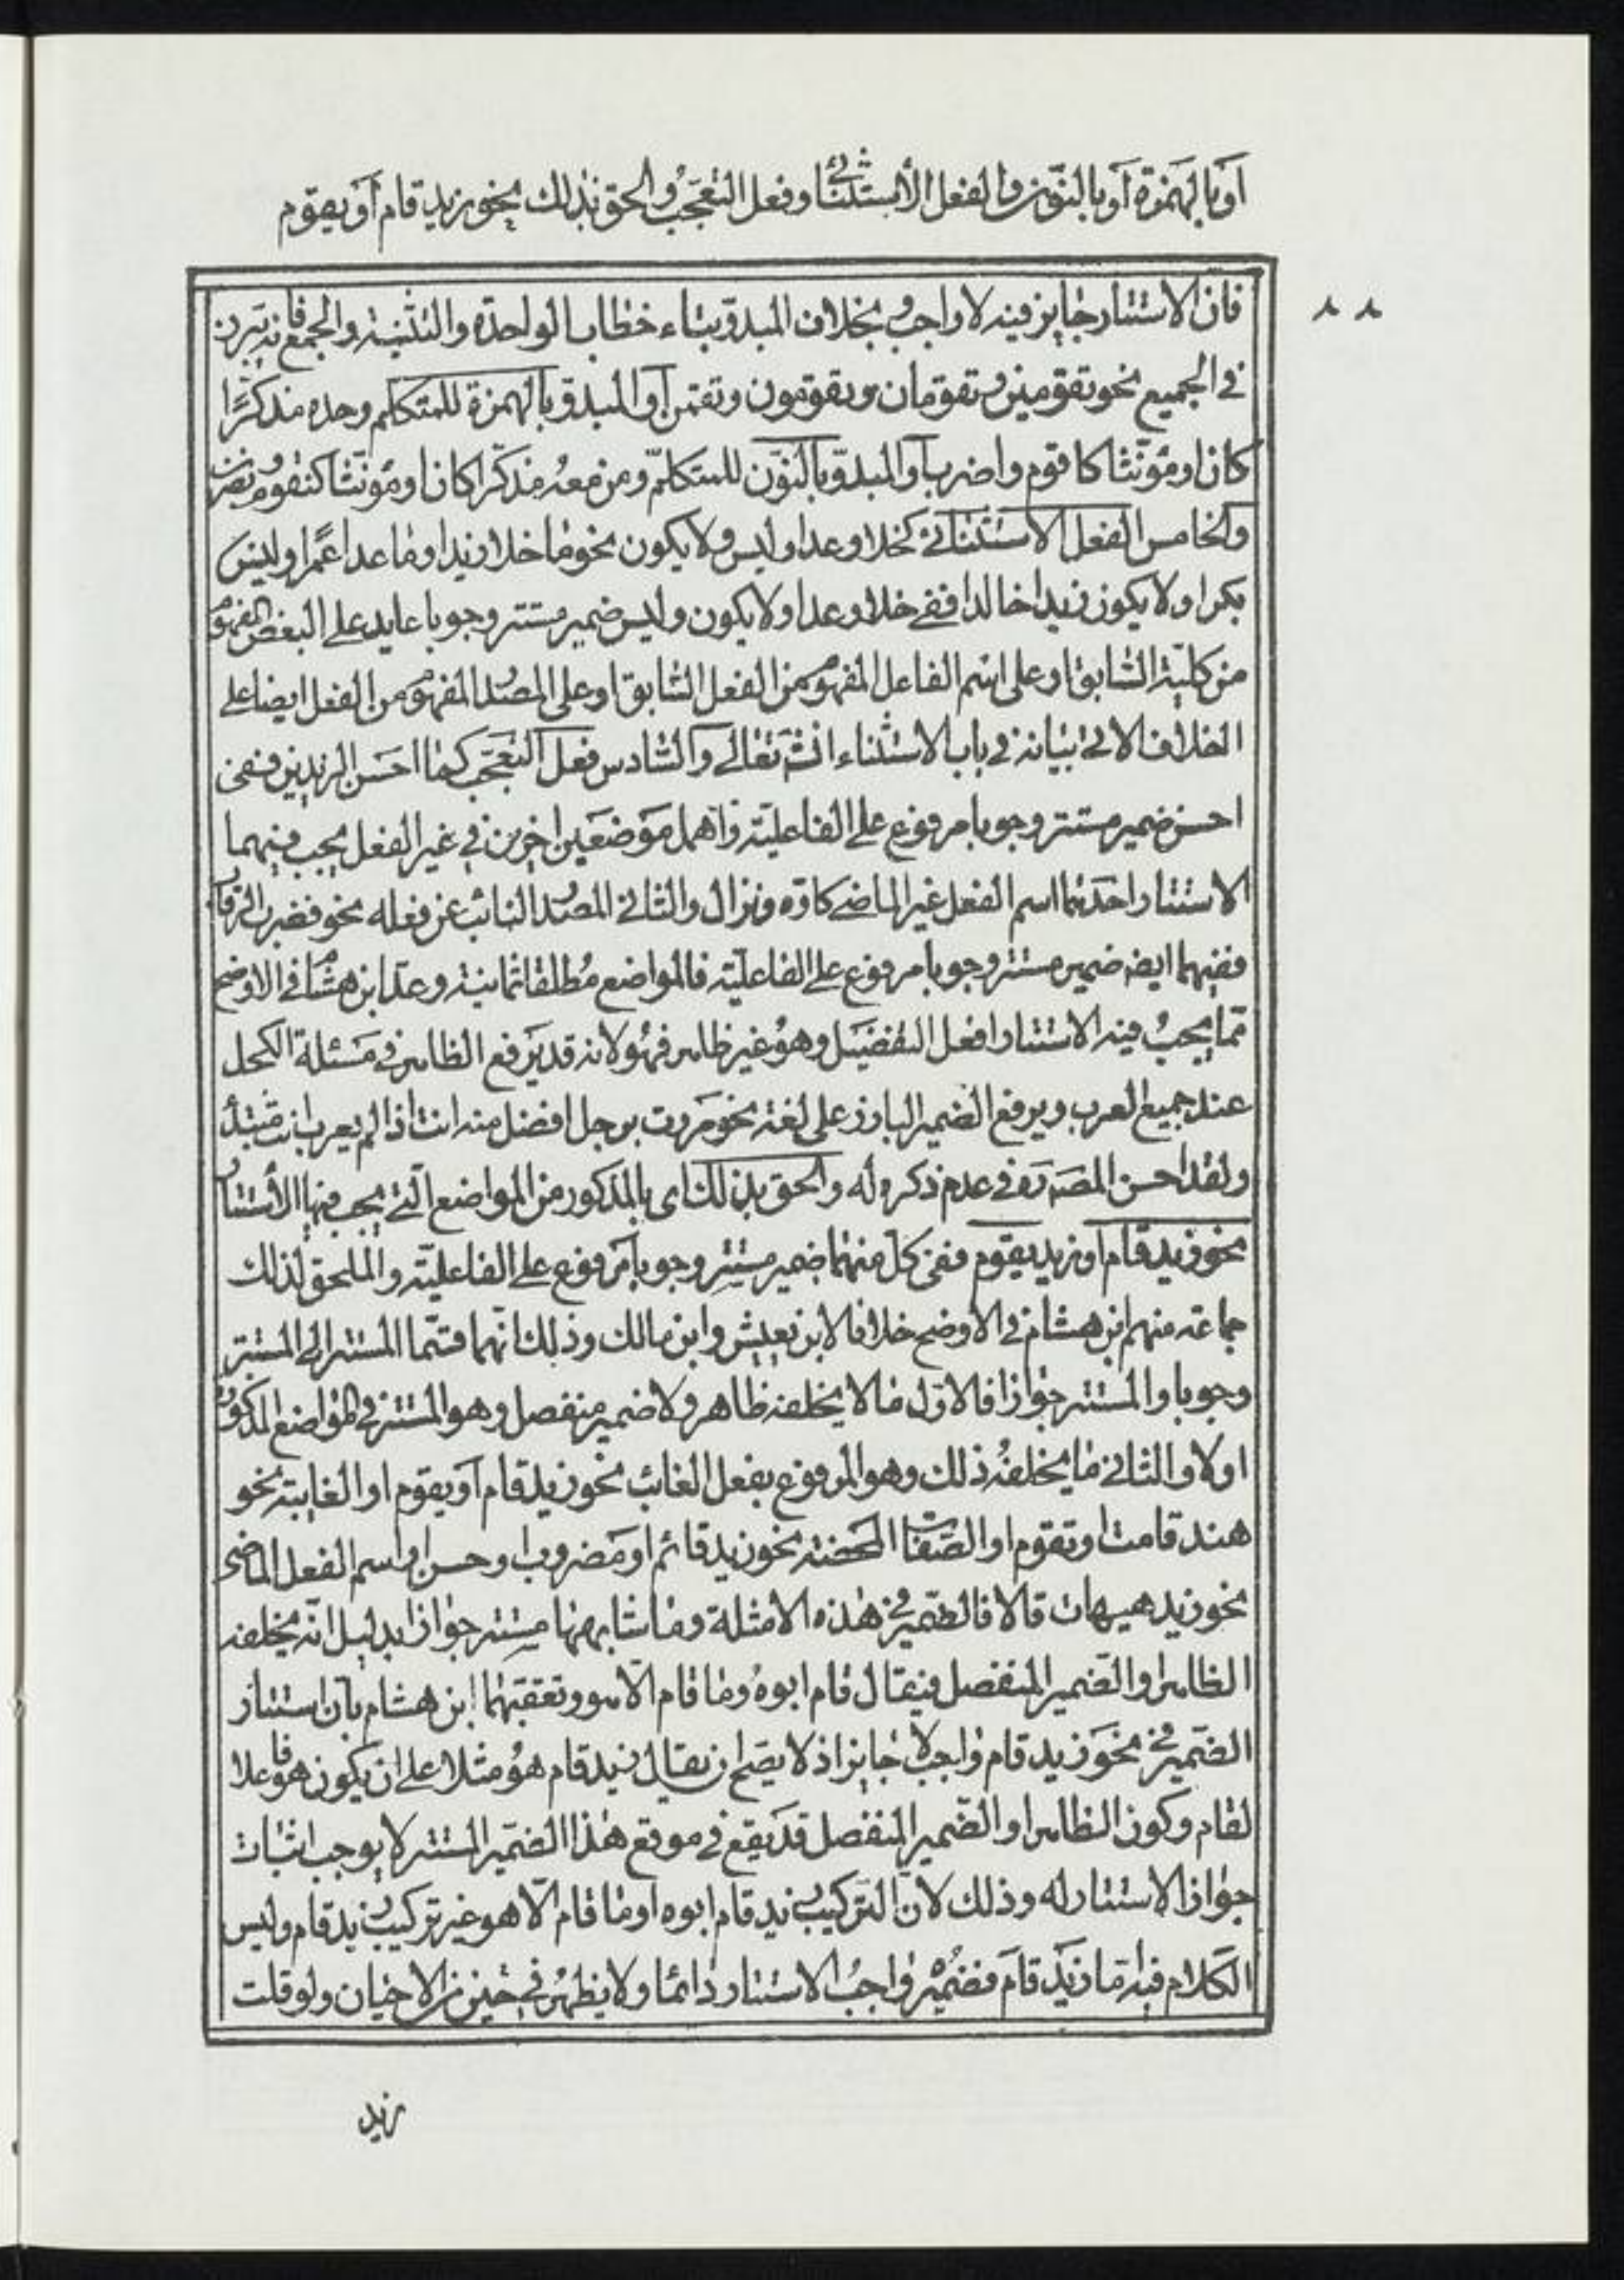 او بالهمزة او بالنون والفعل الاستثنائي وفعل التعجب والحق بذلك نحو زيد قام او يقوم
٨٨
فان الاستتار جايز فيه لا واجب بخلاف المبدوّ بتاء خطاب الواحدة والتثنية والجمع فانه يبرز
في الجميع نحو تقومين وتقومان وتقومون وتقمن او المبدو بالهمزة للمتكلم وحده مذكرًا
كان او مؤنثا كاقوم واضرب او المبدوّ بالنون للمتكلم ومن معه مذكرا كان او مؤنثا كنقوم ونضرب
والخامس الفعل الاستثنائي كخلا وعدا وليس ولا يكون نحو ما خلا زيدا وما عدا عمرا وليس
بكرا ولا يكون زيدا خالدا ففي خلا وعدا ولا يكون وليس ضمير مستتر وجوبا عايد على البعض المفهوم
من كلية السابق او على اسم الفاعل المفهوم من الفعل السابق او على المصدر المفهوم من الفعل ايضا على
الخلاف الاتي بيانه في باب الاستثناء انشه تعالى والسادس فعل التعجب كما احسن الزيدين ففي
احسن ضمير مستتر وجوبا مرفوع على الفاعلية واهمل موضعين اخرين في غير الفعل يجب فيهما
الاستتار احدهما اسم الفعل غير الماضي كاوّه ونزال والثاني المصدر النائب عن فعله نحو فضرب الرقاب
ففيهما ايضه ضمير مستتر وجوبا مرفوع على الفاعلية فالمواضع مطلقا ثمانية وعدّ ابن هشام في الاوضح
مما يجب فيه الاستتار افعل التفضيل وهو غير ظاهر فهو لانه قد يرفع الظاهر في مسئلة الكحل
عند جميع العرب ويرفع الضمير البارز على لغة نحو مررت برجل افضل منه انت اذا لم يعرب انت مبتدأ
ولقد احسن المصه ره في عدم ذكره له والحق بذلك اى بالمذكور من المواضع التي يجب فيها الاستتار
نحو زيد قام او زيد يقوم ففي كل منهما ضمير مستتر وجوبا مرفوع على الفاعلية والملحق لذلك
جماعة منهم ابن هشام في الاوضح خلافا لابن يعيش وابن مالك وذلك انهما قسما المستتر الى المستتر
وجوبا والمستتر جوازا فالاول ما لا يخلفه ظاهر ولا ضمير منفصل وهو المستتر في المواضع المذكورة
اولا والثاني ما يخلفه ذلك وهو المرفوع بفعل الغائب نحو زيد قام او يقوم او الغايبة نحو
هند قامت او تقوم او الصفات المحضة نحو زيد قائم او مضروب او حسن او اسم الفعل الماضي
نحو زيد هيهات قالا فالضمير في هذه الامثلة وما شابهها مستتر جوازا بدليل انه يخلفه
الظاهر او الضمير المنفصل فيقال قام ابوه وما قام الا هو وتعقبهما ابن هشام بان استتار
الضمير في نحو زيد قام واجب لا جايز اذ لا يصح ان يقال زيد قام هو مثلا على ان يكون هو فاعلا
لقام وكون الظاهر او الضمير المنفصل قد يقع في موقع هذا الضمير المستتر لا يوجب اثبات
جواز الاستتار له وذلك لان التركيب زيد قام ابوه او ما قام الا هو غير تركيب زيد قام وليس
الكلام فيه اما زيد قام فضميره واجب الاستتار دائما ولا يظهر في حين من الاحيان ولو قلت
زيد